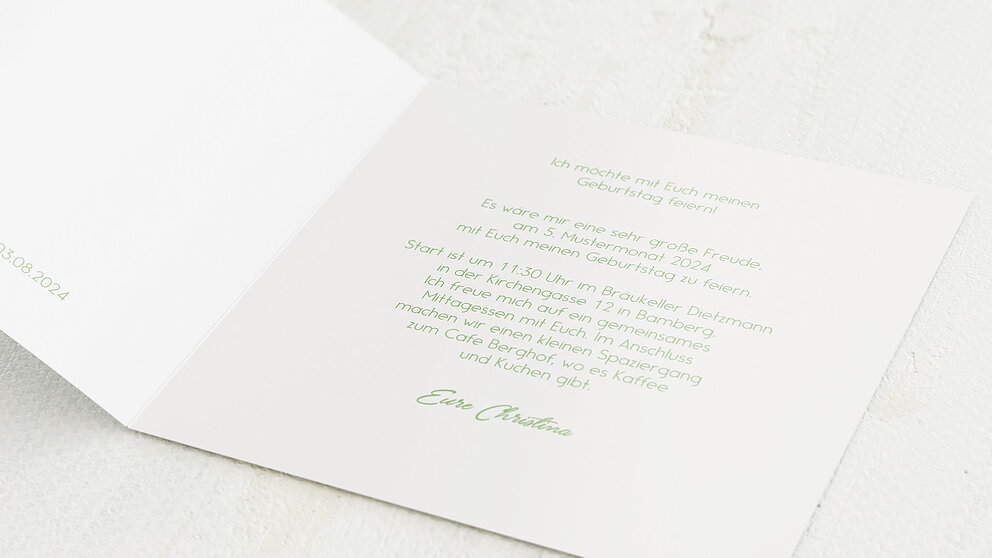 03.08.2024
Ich möchte mit Euch meinen
Geburtstag feiern!
Es wäre mir eine sehr große Freude,
am 5. Mustermonat 2024
mit Euch meinen Geburtstag zu feiern.
Start ist um 11:30 Uhr im Braukeller Dietzmann
in der Kirchengasse 12 in Bamberg.
Ich freue mich auf ein gemeinsames
Mittagessen mit Euch. Im Anschluss
machen wir einen kleinen Spaziergang
zum Cafe Berghof, wo es Kaffee
und Kuchen gibt.
Eure Christina